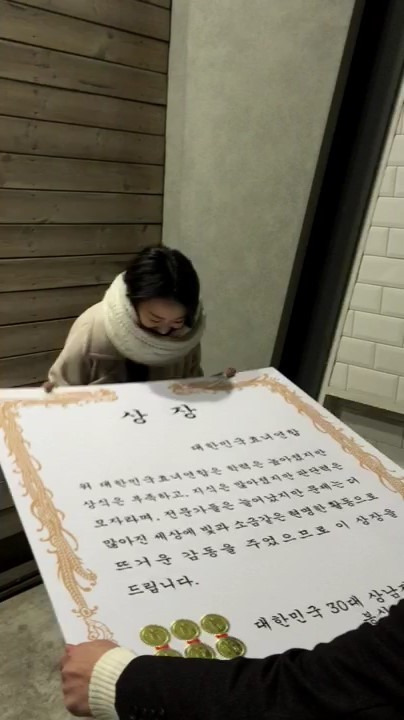 상 장
대한민국효녀연합
위 대한민국효녀연합은 학력은 높아졌지만
상식은 부족하고, 지식은 많아졌지만 판단력은
모자라며, 전문가들은 늘어났지만 문제는 더
많아진 세상에 빛과 소금같은 현명한 활동으로
뜨거운 감동을 주었으므로 이 상장을
드립니다.
대한민국 30대 상남